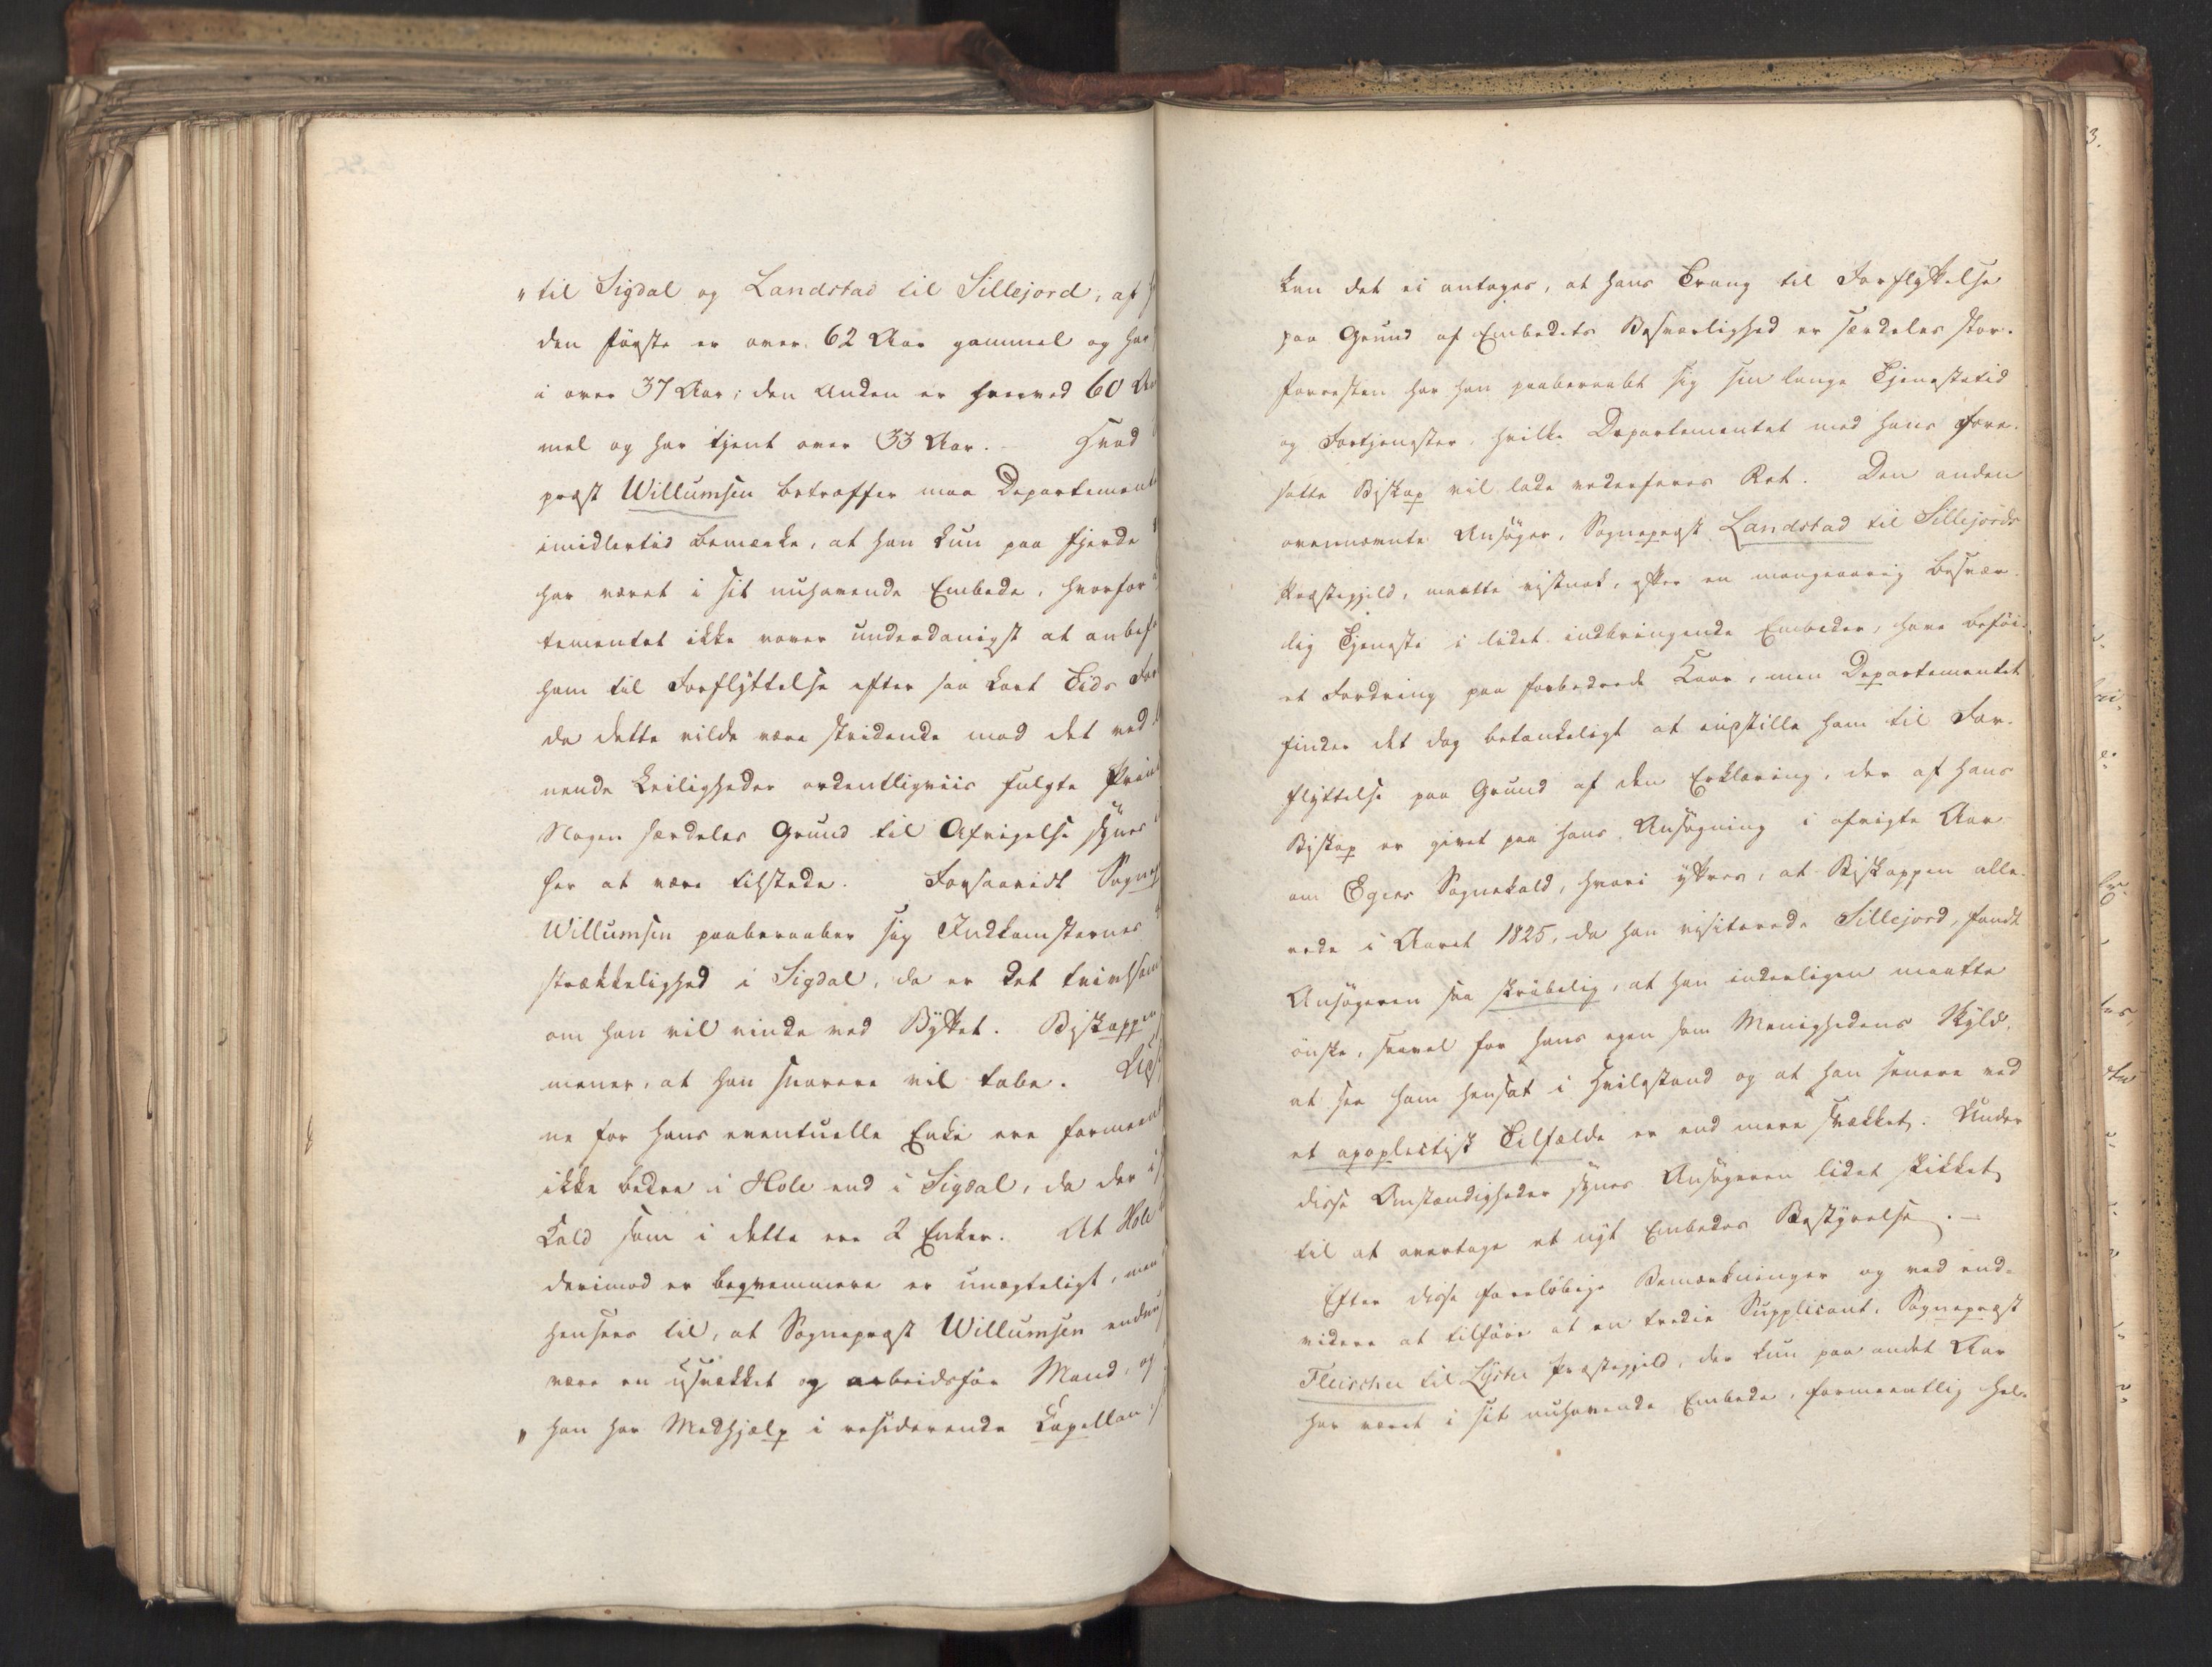 til Sigdal og Landstad til Sillejord, af
den første er over 62 Aar gammel og har
i over 37 Aar; den Anden er henved 60 Aar
mel og har tjent over 33 Aar. Hvad
præst Willumsen betræffer maa Departemente
imidlertid bemærke, at han kun paa fjerde
har været i sit nuhavende Embede, hvorfor
tementet ikke vover underdanigst at anbef
ham til Forflyttelse efter saa kort Tids For
da dette vilde være stridende mod det ved
nende Leiligheder ordentligviis fulgte Prin
Nogen særdeles Grund til Afvigelse synes
her at være tilstede. Forsaavidt Sognep
Willumsen paaberaaber sig Indkomsternes
strækkelighed i Sigdal, da er det tvivlsom
om han vil vinde ved Byttet. Biskoppen
mener, at han snarere vil tabe.
ne for hans eventuelle Enke ere formeent
ikke bedre i Hole end i Sigdal, da der i
Kald som i dette ere 2 Enker. At Hole
derimod er beqvemmere er unægteligt, men
hensees til, at Sognepræst Willumsen endnu
være en usvækket og arbeidsfør Mand, og
han har Medhjælp i residerende Capellan
kan det ei antages, at hans Trang til Forflyttelse
paa Grund af Embedets Besværlighed er særdeles stor.
Forresten har han paaberaabt sig sin lange Tjenestetid
og Fortjenester, hvilke Departementet med hans Fore-
satte Biskop vil lade vederfares Ret. Den anden
ovennævnte Ansøger, Sognepræst Landstad til Sillejords
Præstegjeld, maatte vistnok, efter en mangeaarig besvær-
lig Tjeneste i lidet indbringende Embeder, have beføi-
et Fordring paa forbedrede Kaar, men Departementet
finder det dog betænkeligt at indstille ham til For-
flyttelse paa Grund af den Erklæring, der af hans
Biskop er givet paa hans Ansøgning i afvigte Aar
om Egers Sognekald, hvori yttres, at Biskoppen alle-
rede i Aaret 1825, da han visiterede Sillejord, fandt
Ansøgeren saa skrøbelig, at han inderligen maatte
ønske, saavel for hans egen som Menighedens Skyld,
at see ham hensat i Hvilestand og at han senere ved
et apoplectisk Tilfælde er end mere svækket. Under
disse Omstændigheder synes Ansøgeren lidet skikket
til at overtage et nyt Embedes Bestyrelse. —
Efter disse foreløbige Bemærkninger og ved end-
videre at tilføie at en tredie Supplicant, Sognepræst
Fleischer til Lyster Præstegjeld, der kun paa andet Aar
har været i sit nuhavende Embede, formeentlig hel-